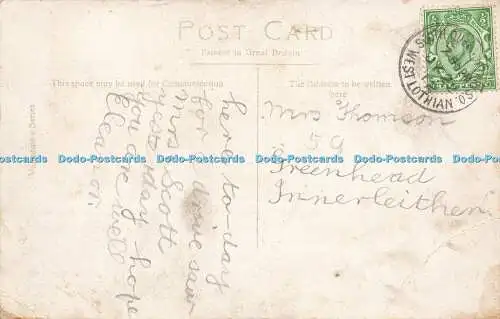 POST CARD
Printed in Great Britain
This space may be used for Communication
The Address to be written
here
here to-day
for a drive saw
Mrs Scott
yesterday hope
you are well
Eleanor.
Mrs Thomson
59
Greenhead
Innerleithen
WEST LOTHIAN
Series
Dodo-Postcards Dodo-Postcards Dodo-Postcards Dodo-Postcards Dodo-Postcards Dodo-Postcards